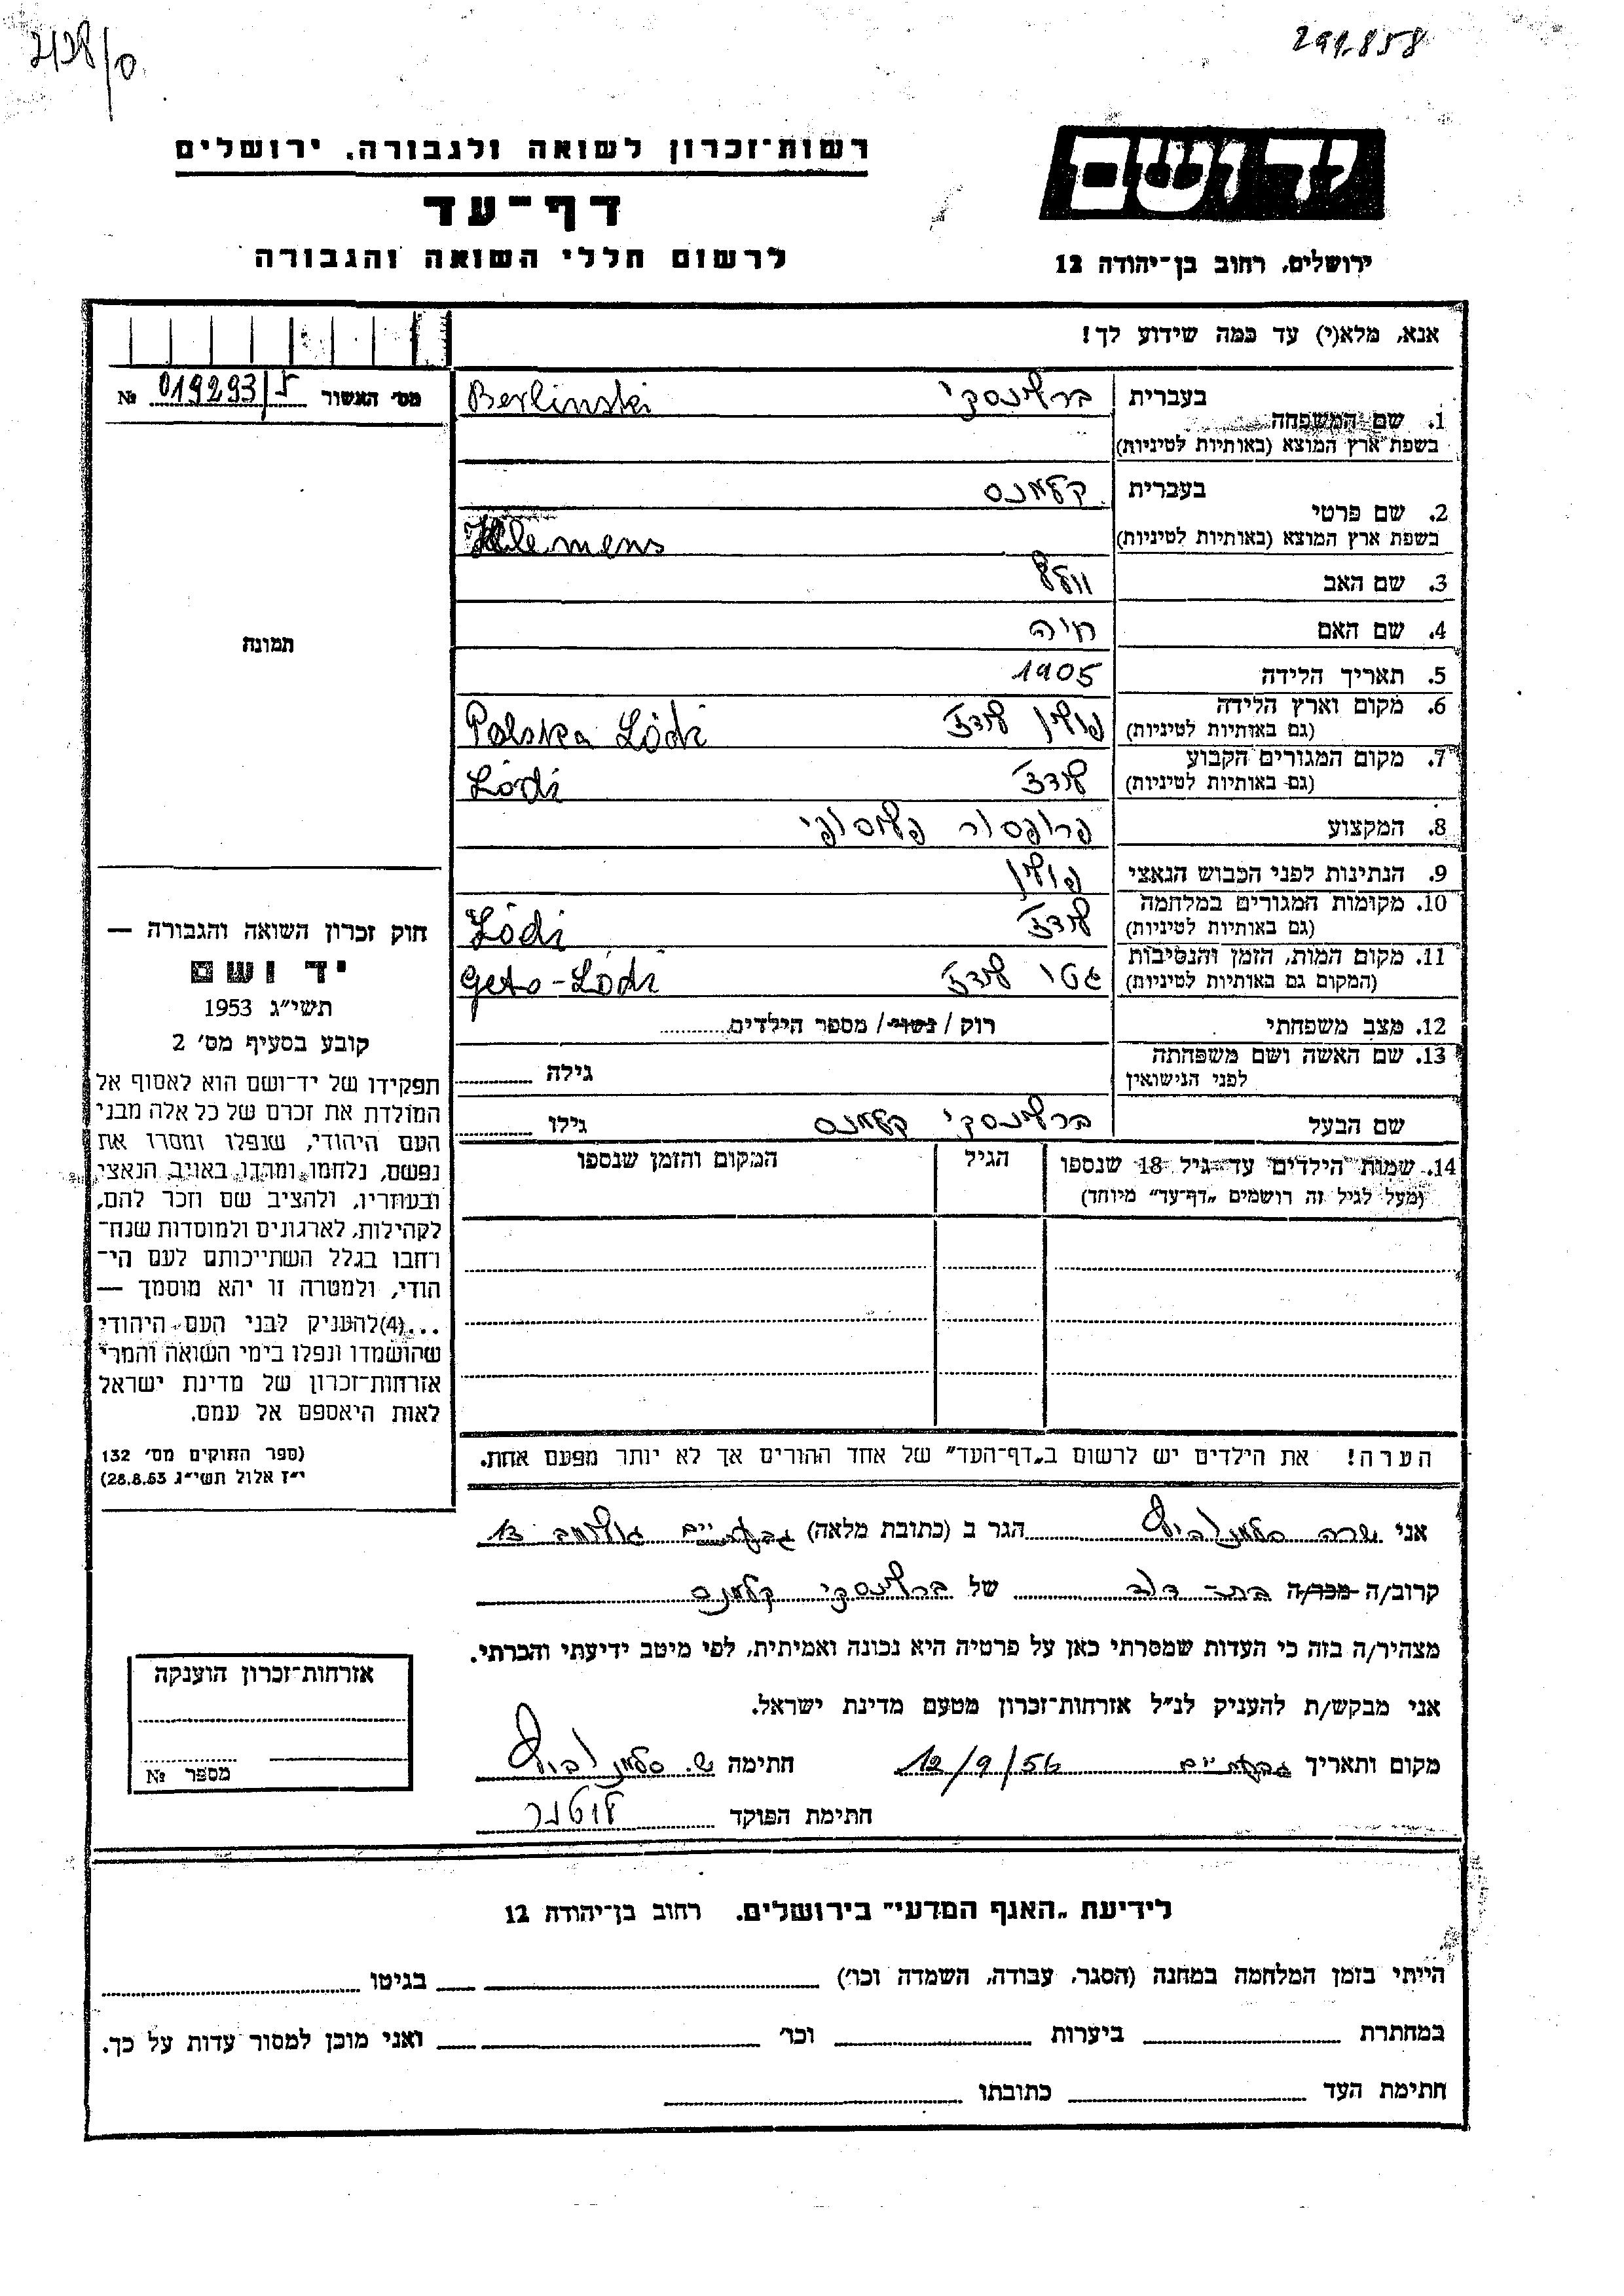 291.858
רשות־זכרון לשואה ולגבורה, ירושלים
דף־עד
לרשום חללי השואה והגבורה
יד ושם
ירושלים, רחוב בן־יהודה 12
אנא, מלא(י) עד כמה שידוע לך!
מס' האשור 019293/ № 
1. שם המשפחה בעברית ברלינסקי
בשפת ארץ המוצא (באותיות לטיניות) Berlinski
2. שם פרטי בעברית קלמנס
בשפת ארץ המוצא (באותיות לטיניות) Klemens
3. שם האב וועלל
4. שם האם חיה
5. תאריך הלידה 1905
6. מקום וארץ הלידה (גם באותיות לטיניות) פולין לודז Polska Lódź
7. מקום המגורים הקבוע (גם באותיות לטיניות) לודז Lódź
8. המקצוע פרופסור פילוסופי
9. הנתינות לפני הכבוש הנאצי פולין
10. מקומות המגורים במלחמה (גם באותיות לטיניות) לודז Lódź
11. מקום המות, הזמן והנסיבות (המקום גם באותיות לטיניות) גטו לודז Geto-Lódź
12. מצב משפחתי רוק / נשוי / מספר הילדים
13. שם האשה ושם משפחתה לפני הנישואין גילה
שם הבעל ברלינסקי קלמנס גילו
14. שמות הילדים עד גיל 18 שנספו הגיל המקום והזמן שנספו
(מעל לגיל זה רושמים „דף־עד” מיוחד)
הערה! את הילדים יש לרשום ב„דף־העד” של אחד ההורים אך לא יותר מפעם אחת.
תמונה
חוק זכרון השואה והגבורה —
יד ושם
תשי״ג 1953
קובע בסעיף מס' 2
תפקידו של יד־ושם הוא לאסוף אל
המולדת את זכרם של כל אלה מבני
העם היהודי, שנפלו ומסרו את
נפשם, נלחמו ומרדו באויב הנאצי
ובעוזריו, ולהציב שם וזכר להם,
לקהילות, לארגונים ולמוסדות שנח־
רחבו בגלל השתייכותם לעם הי־
הודי, ולמטרה זו יהא מוסמך —
...(4) להעניק לבני העם היהודי
שהושמדו ונפלו בימי השואה והמרי
אזרחות־זכרון של מדינת ישראל
לאות היאספם אל עמם.
(ספר החוקים מס' 132
י״ז אלול תשי״ג 28.8.53)
אני שרה הגר ב (כתובת מלאה) גבעתיים 13
קרוב/ה מכר/ה בת דוד של ברלינסקי קלמנס
מצהיר/ה בזה כי העדות שמסרתי כאן על פרטיה היא נכונה ואמיתית, לפי מיטב ידיעתי והכרתי.
אני מבקש/ת להעניק לנ״ל אזרחות־זכרון מטעם מדינת ישראל.
מקום ותאריך גבעתיים 12/9/56 חתימה ש.
חתימת הפוקד
אזרחות־זכרון הוענקה
מספר №
לידיעת „האגף המדעי” בירושלים, רחוב בן־יהודה 12
הייתי בזמן המלחמה במחנה (הסגר, עבודה, השמדה וכו') בגיטו
במחתרת ביערות וכו' ואני מוכן למסור עדות על כך.
חתימת העד כתובתו